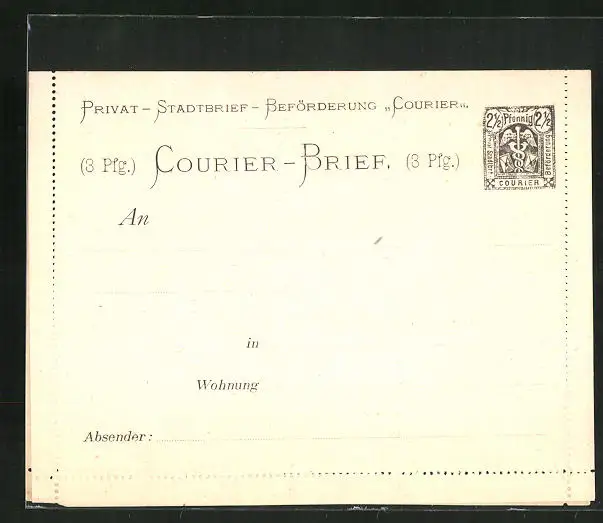 Privat-Stadtbrief-Beförderung „Courier“.
(3 Pfg.) Courier-Brief. (3 Pfg.)
2½ Pfennig 2½
Beförderung
COURIER
An
in
Wohnung
Absender: